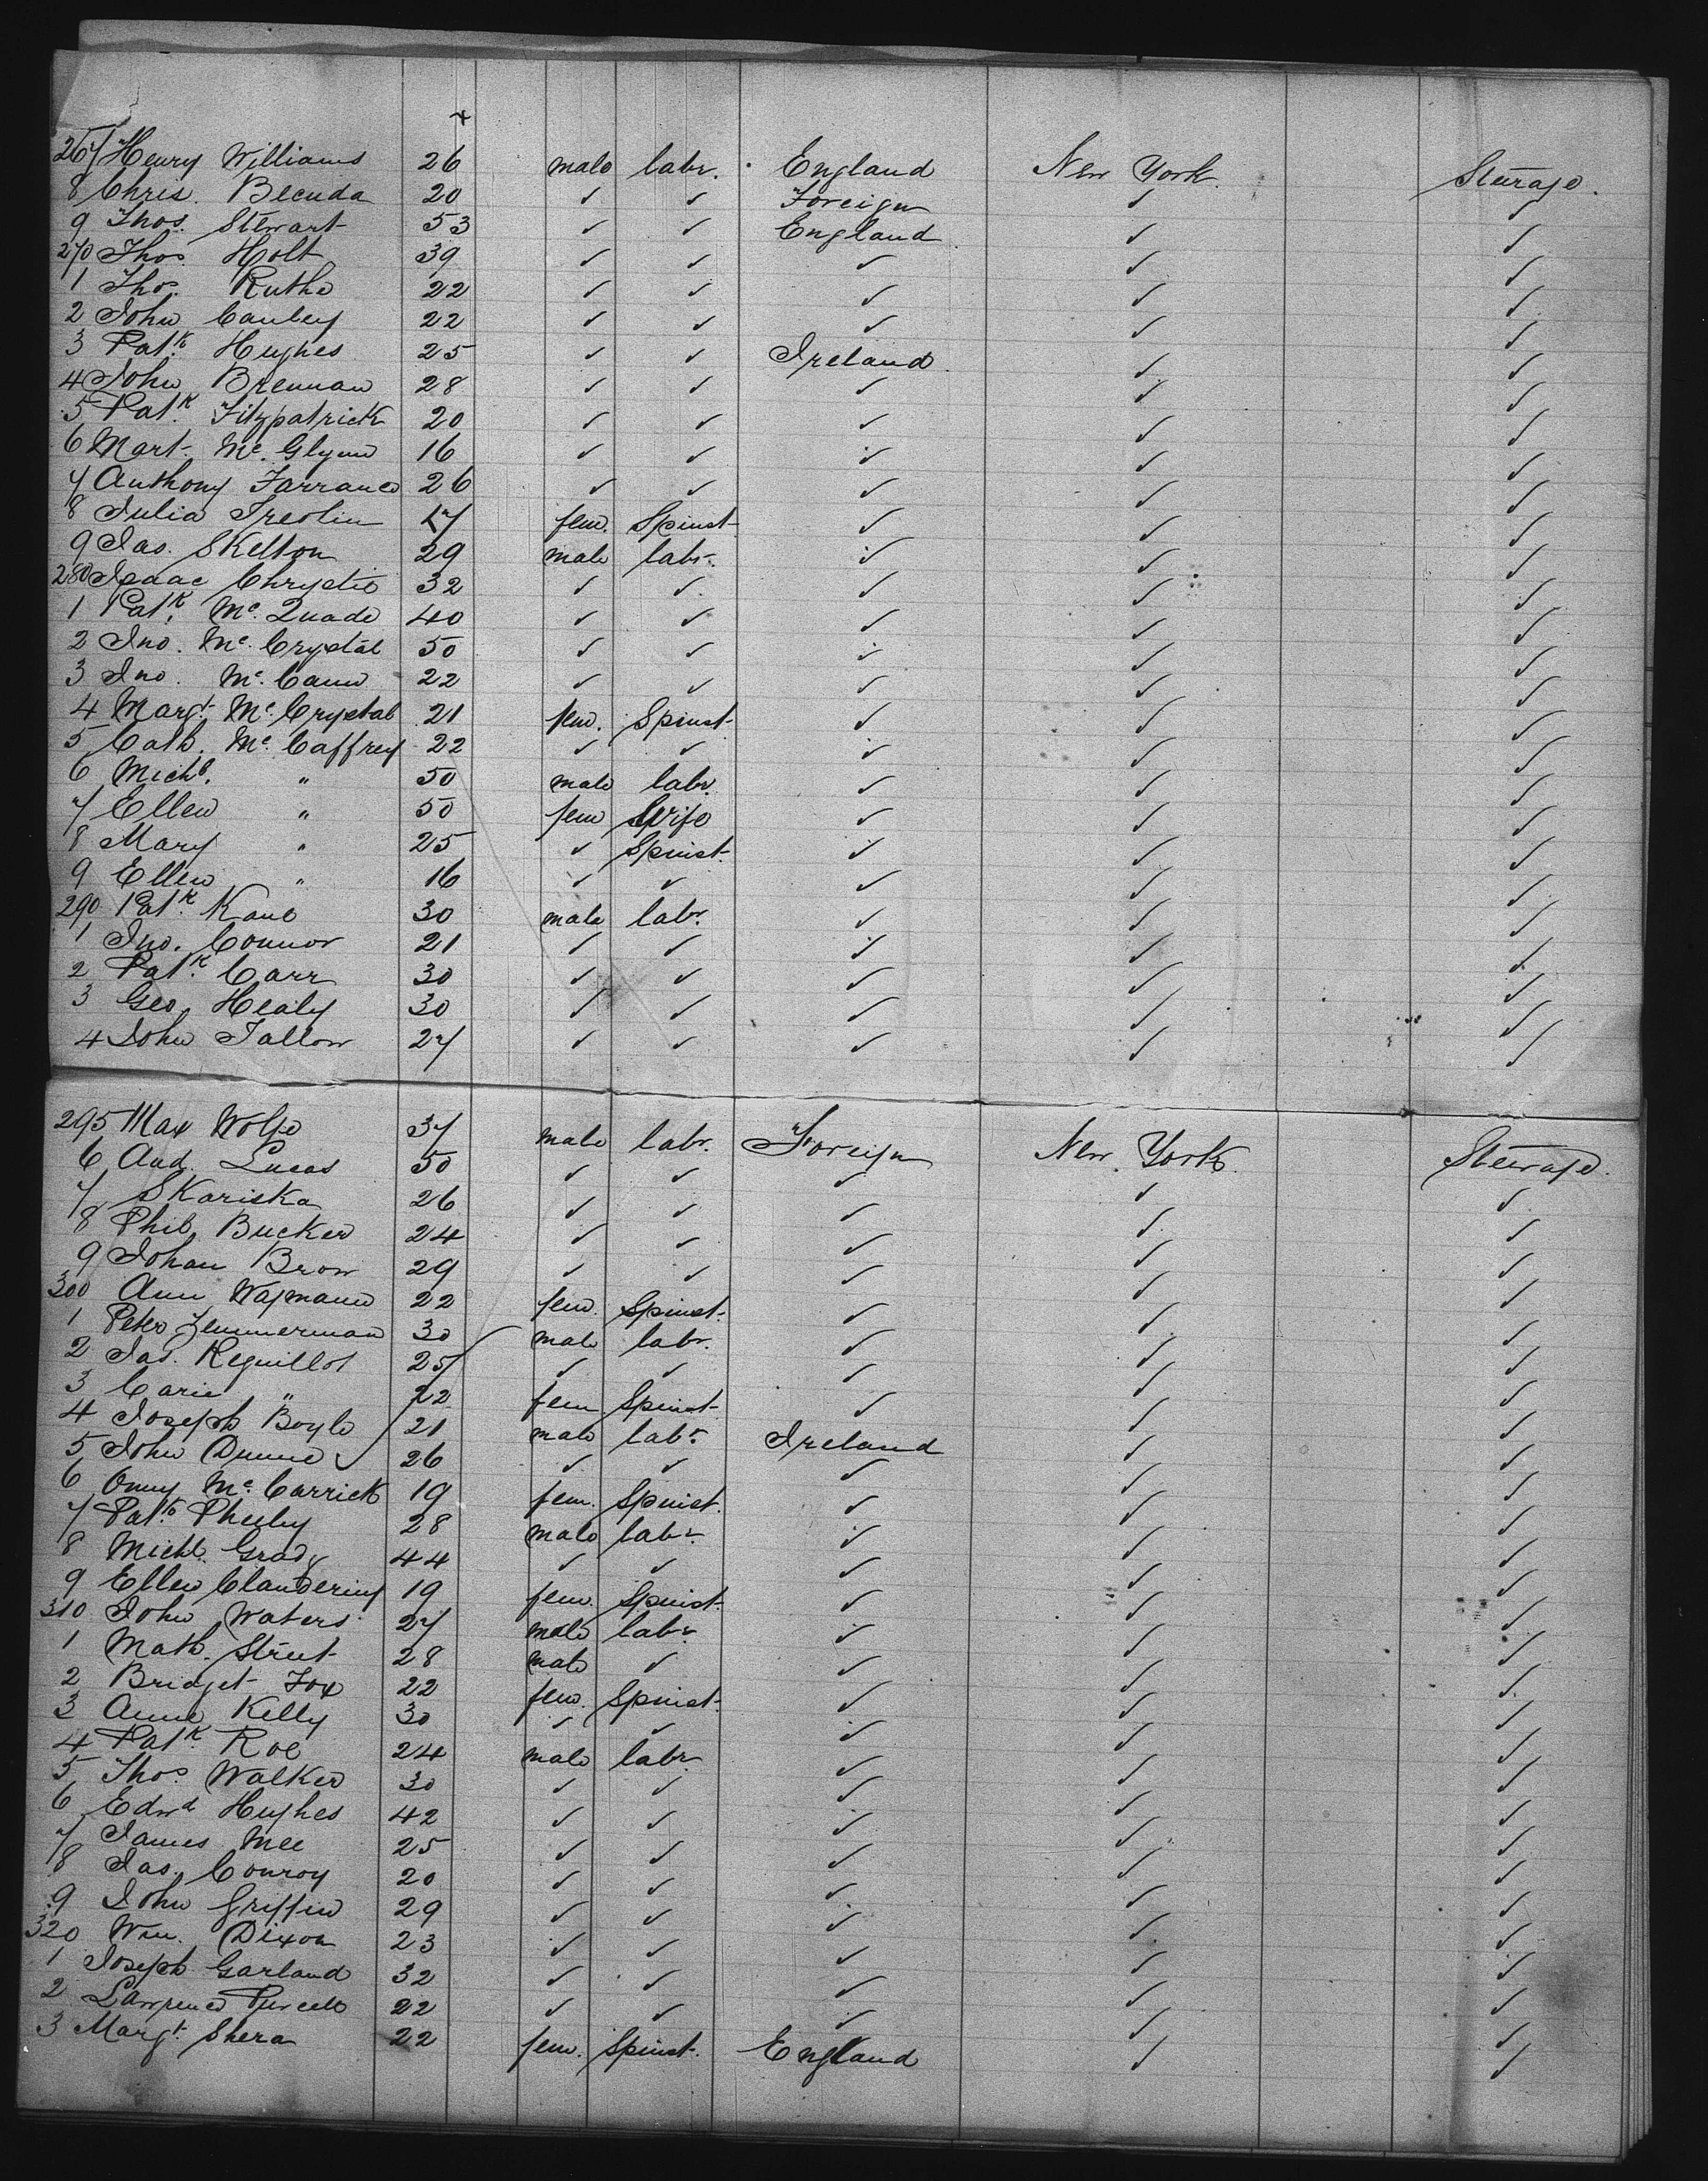 267 Henry Williams 26 male labr. England New York Steerage.
8 Chris. Becuda 20 ✓ ✓ Foreign ✓ ✓
9 Thos. Stewart 53 ✓ ✓ England ✓ ✓
270 Thos. Holt 39 ✓ ✓ ✓ ✓ ✓
1 Thos. Ruthe 22 ✓ ✓ ✓ ✓ ✓
2 John Canley 22 ✓ ✓ ✓ ✓ ✓
3 Patk. Hughes 25 ✓ ✓ Ireland ✓ ✓
4 John Brennan 28 ✓ ✓ ✓ ✓ ✓
5 Patk. Fitzpatrick 20 ✓ ✓ ✓ ✓ ✓
6 Mart. Mc. Glynn 16 ✓ ✓ ✓ ✓ ✓
7 Anthony Farrance 26 ✓ ✓ ✓ ✓ ✓
8 Julia Treolin 17 fem. Spinst. ✓ ✓ ✓
9 Jas. Skelton 29 male labr. ✓ ✓ ✓
280 Isaac Chrystie 32 ✓ ✓ ✓ ✓ ✓
1 Patk. Mc. Quade 40 ✓ ✓ ✓ ✓ ✓
2 Jno. Mc. Crystal 50 ✓ ✓ ✓ ✓ ✓
3 Jno. Mc. Cann 22 ✓ ✓ ✓ ✓ ✓
4 Margt. Mc. Crystal 21 fem. Spinst. ✓ ✓ ✓
5 Cath. Mc. Caffrey 22 ✓ ✓ ✓ ✓ ✓
6 Michl. " 50 male labr. ✓ ✓ ✓
7 Ellen " 50 fem Wife ✓ ✓ ✓
8 Mary " 25 ✓ Spinst. ✓ ✓ ✓
9 Ellen " 16 ✓ ✓ ✓ ✓ ✓
290 Patk. Kane 30 male labr. ✓ ✓ ✓
1 Jno. Connor 21 ✓ ✓ ✓ ✓ ✓
2 Patk. Carr 30 ✓ ✓ ✓ ✓ ✓
3 Geo. Healy 30 ✓ ✓ ✓ ✓ ✓
4 John Fallon 27 ✓ ✓ ✓ ✓ ✓
295 Max Wolfe 37 male labr. Foreign New York Steerage.
6 And. Lucas 50 ✓ ✓ ✓ ✓ ✓
7 Skariska 26 ✓ ✓ ✓ ✓ ✓
8 Phil. Bucker 24 ✓ ✓ ✓ ✓ ✓
9 Johan Brow 29 ✓ ✓ ✓ ✓ ✓
300 Ann Wapmann 22 fem. Spinst. ✓ ✓ ✓
1 Peter Zemmerman 30 male labr. ✓ ✓ ✓
2 Jas. Reguillot 25 ✓ ✓ ✓ ✓ ✓
3 Carie " 22 fem Spinst. ✓ ✓ ✓
4 Joseph Boyle 21 male labr. Ireland ✓ ✓
5 John Dunne 26 ✓ ✓ ✓ ✓ ✓
6 Mc. Carrick 19 fem. Spinst. ✓ ✓ ✓
7 Patk. Pheeby 28 male labr. ✓ ✓ ✓
8 Michl. Grady 44 ✓ ✓ ✓ ✓ ✓
9 Ellen Clandening 19 fem. Spinst. ✓ ✓ ✓
310 John Waters 27 male labr. ✓ ✓ ✓
1 Math. Street 28 male ✓ ✓ ✓ ✓
2 Bridget Fox 22 fem. Spinst. ✓ ✓ ✓
3 Anne Kelly 30 ✓ ✓ ✓ ✓ ✓
4 Patk. Roe 24 male labr. ✓ ✓ ✓
5 Thos. Walker 30 ✓ ✓ ✓ ✓ ✓
6 Edwd Hughes 42 ✓ ✓ ✓ ✓ ✓
7 James Mee 25 ✓ ✓ ✓ ✓ ✓
8 Jas. Conroy 20 ✓ ✓ ✓ ✓ ✓
9 John Griffin 29 ✓ ✓ ✓ ✓ ✓
320 Wm. Dixon 23 ✓ ✓ ✓ ✓ ✓
1 Joseph Garland 32 ✓ ✓ ✓ ✓ ✓
2 Lawrence Purcell 22 ✓ ✓ ✓ ✓ ✓
3 Margt. Shera 22 fem. Spinst. England ✓ ✓